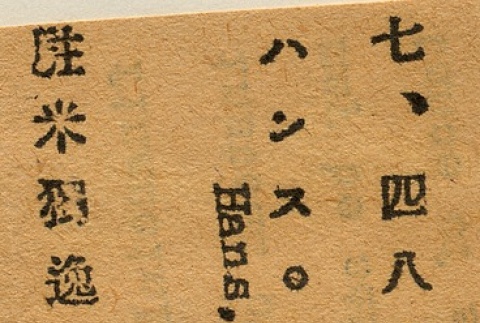 七、四八
ハンス。
Hans,
駐米獨逸